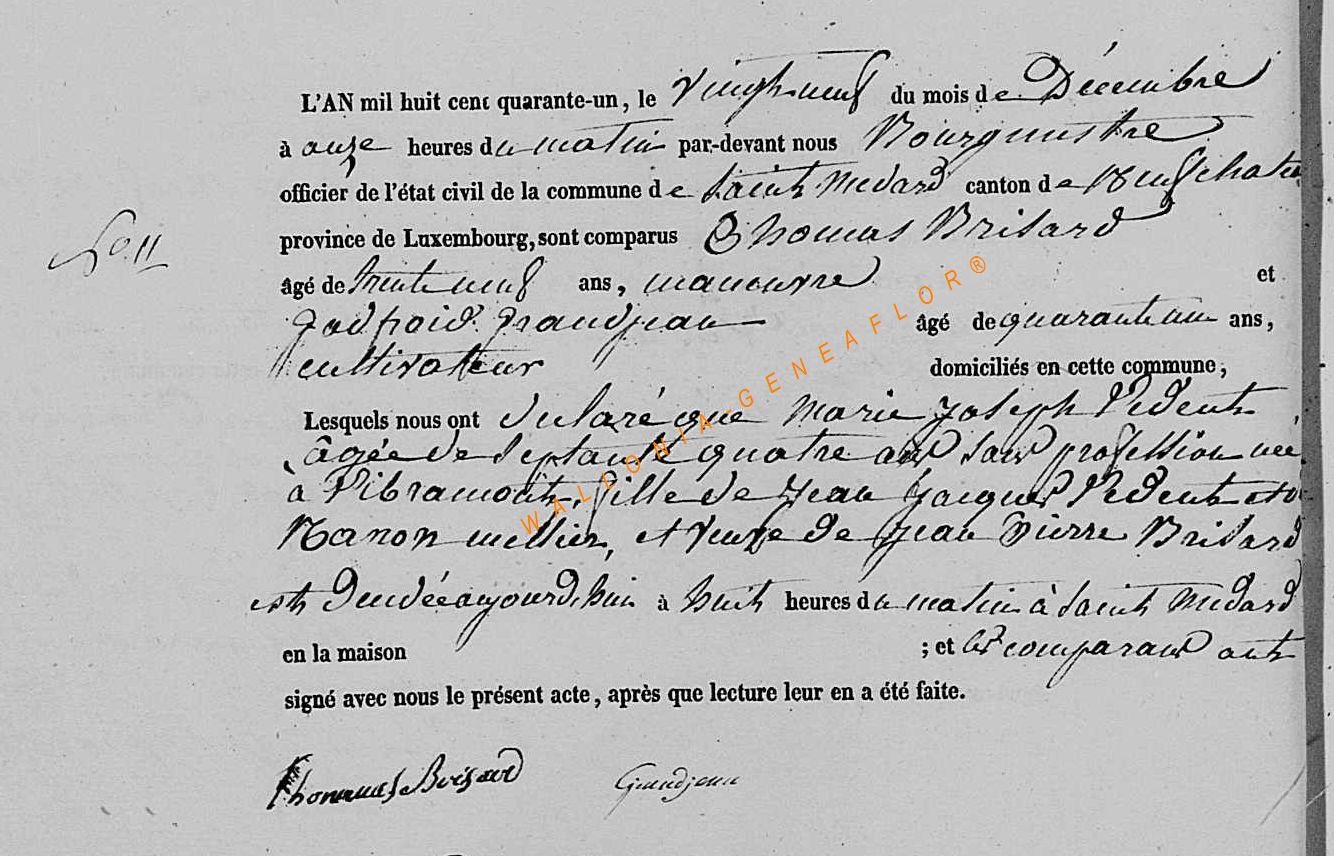 L'AN mil huit cent quarante-un, le vingt neuf du mois de Décembre
à onze heures du matin par-devant nous Bourgmestre
officier de l'état civil de la commune de Saint Medard canton de Neufchateau
No 11
province de Luxembourg, sont comparus Thomas Brisard
âgé de trente neuf ans, manouvre et
Godfroid Grandjean âgé de quarante un ans,
cultivateur domiciliés en cette commune;
Lesquels nous ont déclaré que Marie Joseph Pident
âgée de septante quatre ans sans profession née
a Vibramont, fille de Jean Jacques Pident et de
Nanon mellier, et veuve de Jean Pierre Brisard
est décédée aujourd'hui à huit heures du matin à Saint Medard
en la maison ; et les comparans ont
signé avec nous le présent acte, après que lecture leur en a été faite.
Thomas Brisard Grandjean
WALLONIA-GENEAFLOR®